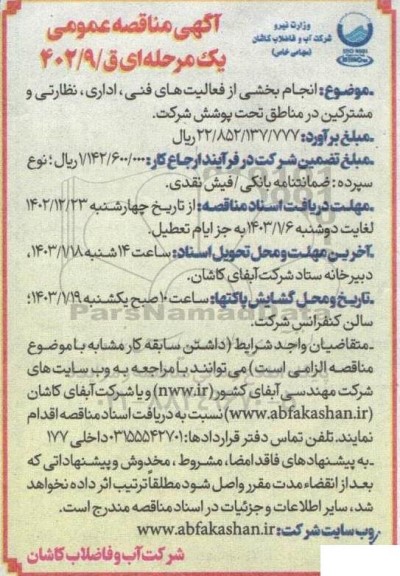 وزارت نیرو
شرکت آب و فاضلاب کاشان
(سهامی خاص)
آگهی مناقصه عمومی
یک مرحله‌ای ق/۴۰۲/۹
ـ موضوع: انجام بخشی از فعالیت‌های فنی، اداری، نظارتی و
مشترکین در مناطق تحت پوشش شرکت.
ـ مبلغ برآورد: ۲۲/۸۵۲/۱۳۷/۷۷۷ ریال
ـ مبلغ تضمین شرکت در فرآیند ارجاع کار: ۱/۱۴۲/۶۰۰/۰۰۰ ریال؛ نوع
سپرده: ضمانتنامه بانکی/فیش نقدی.
ـ مهلت دریافت اسناد مناقصه: از تاریخ چهارشنبه ۱۴۰۲/۱۲/۲۳
لغایت دوشنبه ۱۴۰۳/۱/۶ به جز ایام تعطیل.
ـ آخرین مهلت و محل تحویل اسناد: ساعت ۱۴ شنبه ۱۴۰۳/۱/۱۸،
دبیرخانه ستاد شرکت آبفای کاشان.
ـ تاریخ و محل گشایش پاکتها: ساعت ۱۰ صبح یکشنبه ۱۴۰۳/۱/۱۹؛
سالن کنفرانس شرکت.
ـ متقاضیان واجد شرایط (داشتن سابقه کار مشابه با موضوع
مناقصه الزامی است) می‌توانند با مراجعه به وب سایت‌های
شرکت مهندسی آبفای کشور (nww.ir) و یا شرکت آبفای کاشان
(www.abfakashan.ir) نسبت به دریافت اسناد مناقصه اقدام
نمایند. تلفن تماس دفتر قراردادها: ۰۳۱۵۵۵۴۲۷۰۱ داخلی ۱۷۷
ـ به پیشنهادهای فاقد امضا، مشروط، مخدوش و پیشنهاداتی که
بعد از انقضاء مدت مقرر واصل شود مطلقاً ترتیب اثر داده نخواهد
شد، سایر اطلاعات و جزئیات در اسناد مناقصه مندرج است.
وب سایت شرکت: www.abfakashan.ir
شرکت آب و فاضلاب کاشان
ParsNamadData